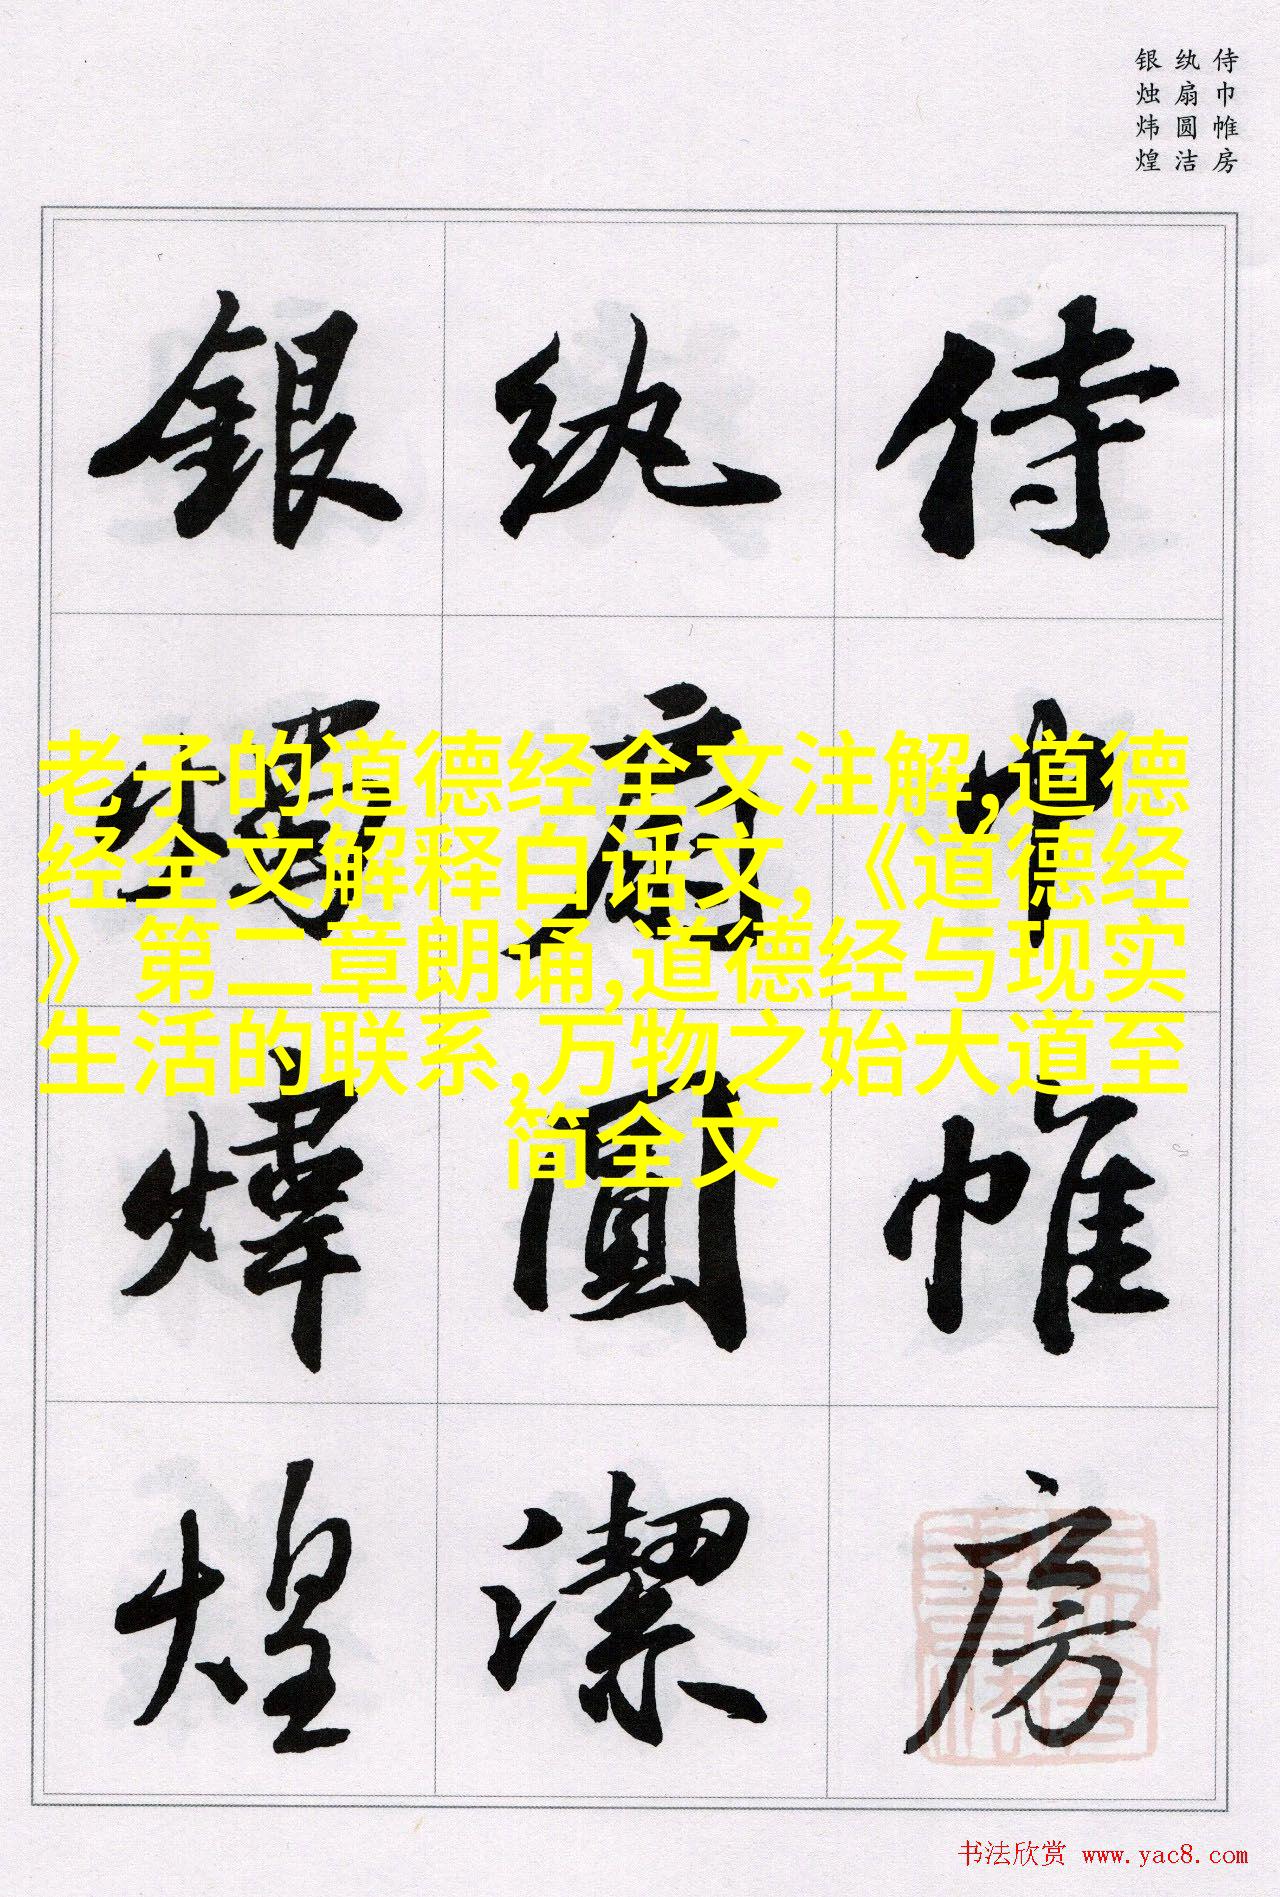 侍巾帷房
纨扇圆洁
银烛炜煌
侍巾帷房
纨扇圓潔
銀燭煒煌
老子的道德经全文注解,道德
经全文解释白话文,《道德经
》第二章朗诵,道德经与现实
生活的联系,万物之始大道至
简全文
书法欣赏 www.yac8.com